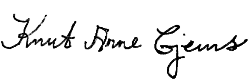 Knut Arne Gjems